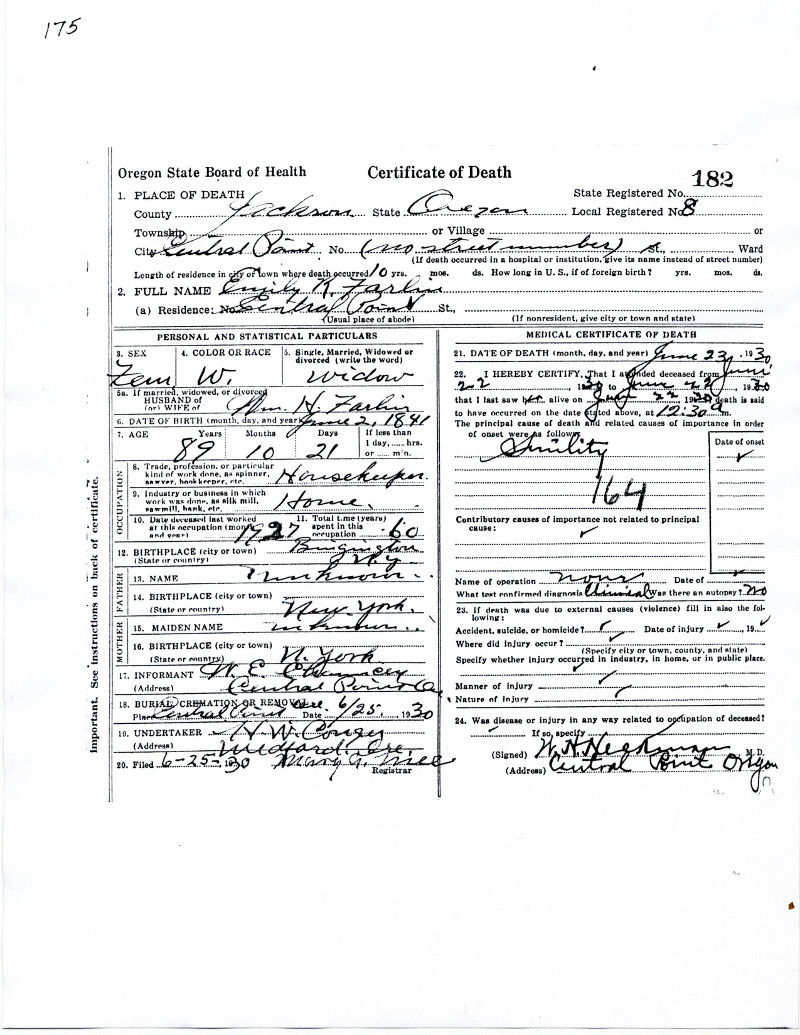 175
Oregon State Board of Health Certificate of Death 182
1. PLACE OF DEATH State Registered No.
County Jackson State Oregon Local Registered No. 8
Township or Village or
City Central Point No. (no street number) St., Ward
(If death occurred in a hospital or institution, give its name instead of street number)
Length of residence in city or town where death occurred 10 yrs. mos. ds. How long in U. S., if of foreign birth? yrs. mos. ds.
2. FULL NAME Emily R. Farlin
(a) Residence: No. Central Point St.,
(Usual place of abode) (If nonresident, give city or town and state)
PERSONAL AND STATISTICAL PARTICULARS
3. SEX 4. COLOR OR RACE 5. Single, Married, Widowed or
divorced (write the word)
Fem W. Widow
5a. If married, widowed, or divorced
HUSBAND of
(or) WIFE of Wm. H. Farlin
6. DATE OF BIRTH (month, day, and year) June 2, 1841
7. AGE Years Months Days If less than
1 day, hrs.
or min.
89 10 21
OCCUPATION
8. Trade, profession, or particular
kind of work done, as spinner,
sawyer, bookkeeper, etc. Housekeeper
9. Industry or business in which
work was done, as silk mill,
sawmill, bank, etc. Home
10. Date deceased last worked
at this occupation (month
and year) 1927
11. Total time (years)
spent in this
occupation 60
12. BIRTHPLACE (city or town)
(State or country) N.Y.
FATHER
13. NAME Unknown
14. BIRTHPLACE (city or town)
(State or country) New York.
MOTHER
15. MAIDEN NAME unknown
16. BIRTHPLACE (city or town)
(State or country) N. York
17. INFORMANT W. E.
(Address) Central Point O
18. BURIAL, CREMATION OR REMOVAL
Place Central Point Ore. Date 6/25, 1930
19. UNDERTAKER H. W. Conger
(Address) Medford, Ore.
20. Filed 6-25-1930 Mary A. Mee
Registrar
Important. See instructions on back of certificate.
MEDICAL CERTIFICATE OF DEATH
21. DATE OF DEATH (month, day, and year) June 23, 1930
22. I HEREBY CERTIFY, That I attended deceased from June
22, 1930 to June 22, 1930
that I last saw her alive on June 22 1930 death is said
to have occurred on the date stated above, at 12:30 a m.
The principal cause of death and related causes of importance in order
of onset were as follows:
Date of onset
Senility
164
Contributory causes of importance not related to principal
cause:
Name of operation none Date of
What test confirmed diagnosis Clinical Was there an autopsy? No
23. If death was due to external causes (violence) fill in also the fol-
lowing:
Accident, suicide, or homicide? Date of injury 19
Where did injury occur?
(Specify city or town, county, and state)
Specify whether injury occurred in industry, in home, or in public place.
Manner of injury
Nature of injury
24. Was disease or injury in any way related to occupation of deceased?
If so, specify
(Signed) W. H. Heckman M. D.
(Address) Central Point Oregon